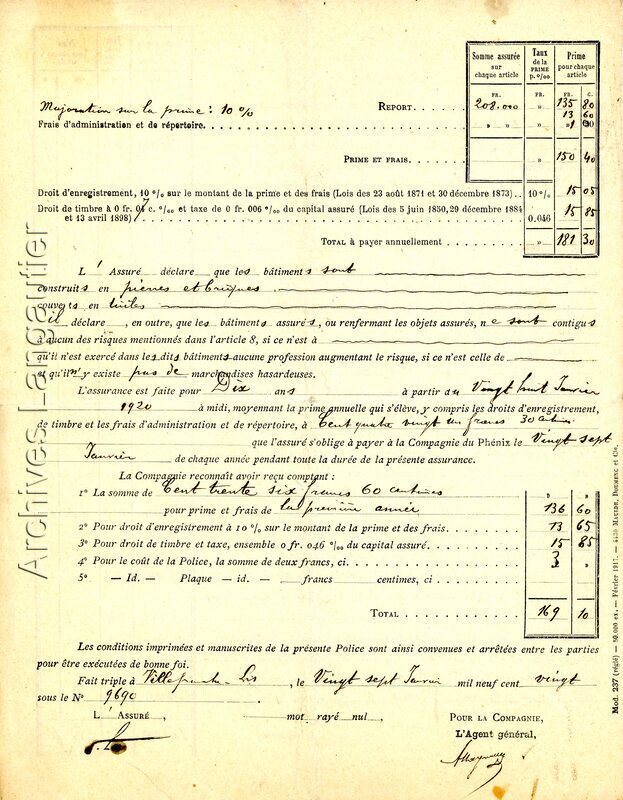 Somme assurée sur chaque article
Taux de la PRIME p. º/ºº
Prime pour chaque article
FR. FR. FR. C.
Majoration sur la prime : 10 % REPORT. 208.000 » 135 80
13 60
Frais d'administration et de répertoire. » » » 1 00
PRIME ET FRAIS. » 150 40
Droit d'enregistrement, 10 % sur le montant de la prime et des frais (Lois des 23 août 1871 et 30 décembre 1873) 10 % 15 05
Droit de timbre à 0 fr. 04 c. º/ºº et taxe de 0 fr. 006 º/ºº du capital assuré (Lois des 5 juin 1850, 29 décembre 1884
et 13 avril 1898) 0.046 15 85
TOTAL à payer annuellement » 181 30
L'Assuré déclare que les bâtiments sont
construits en pierres et briques
couverts en tuiles
il déclare, en outre, que les bâtiments assurés, ou renfermant les objets assurés, ne sont contigus
à aucun des risques mentionnés dans l'article 8, si ce n'est à
qu'il n'est exercé dans les dits bâtiments aucune profession augmentant le risque, si ce n'est celle de
et qu'il n'y existe pas de marchandises hasardeuses.
L'assurance est faite pour Dix ans à partir du Vingt huit Janvier
1920 à midi, moyennant la prime annuelle qui s'élève, y compris les droits d'enregistrement,
de timbre et les frais d'administration et de répertoire, à Cent quatre vingt un francs 30 centimes
que l'assuré s'oblige à payer à la Compagnie du Phénix le Vingt sept
Janvier de chaque année pendant toute la durée de la présente assurance.
La Compagnie reconnaît avoir reçu comptant :
1º La somme de Cent trente six francs 60 centimes
pour prime et frais de la première année 136 60
2º Pour droit d'enregistrement à 10 % sur le montant de la prime et des frais. 13 65
3º Pour droit de timbre et taxe, ensemble 0 fr. 046 º/ºº du capital assuré. 15 85
4º Pour le coût de la Police, la somme de deux francs, ci. 3 »
5º — Id. — Plaque — id. — francs centimes, ci
TOTAL 169 10
Les conditions imprimées et manuscrites de la présente Police sont ainsi convenues et arrêtées entre les parties
pour être exécutées de bonne foi.
Fait triple à , le Vingt sept Janvier mil neuf cent vingt
sous le Nº 9690
L'ASSURÉ, mot rayé nul, POUR LA COMPAGNIE,
L'Agent général,
Mod. 237 (réglé) — 80.000 ex. — Février 1917. —
Archives Langautier